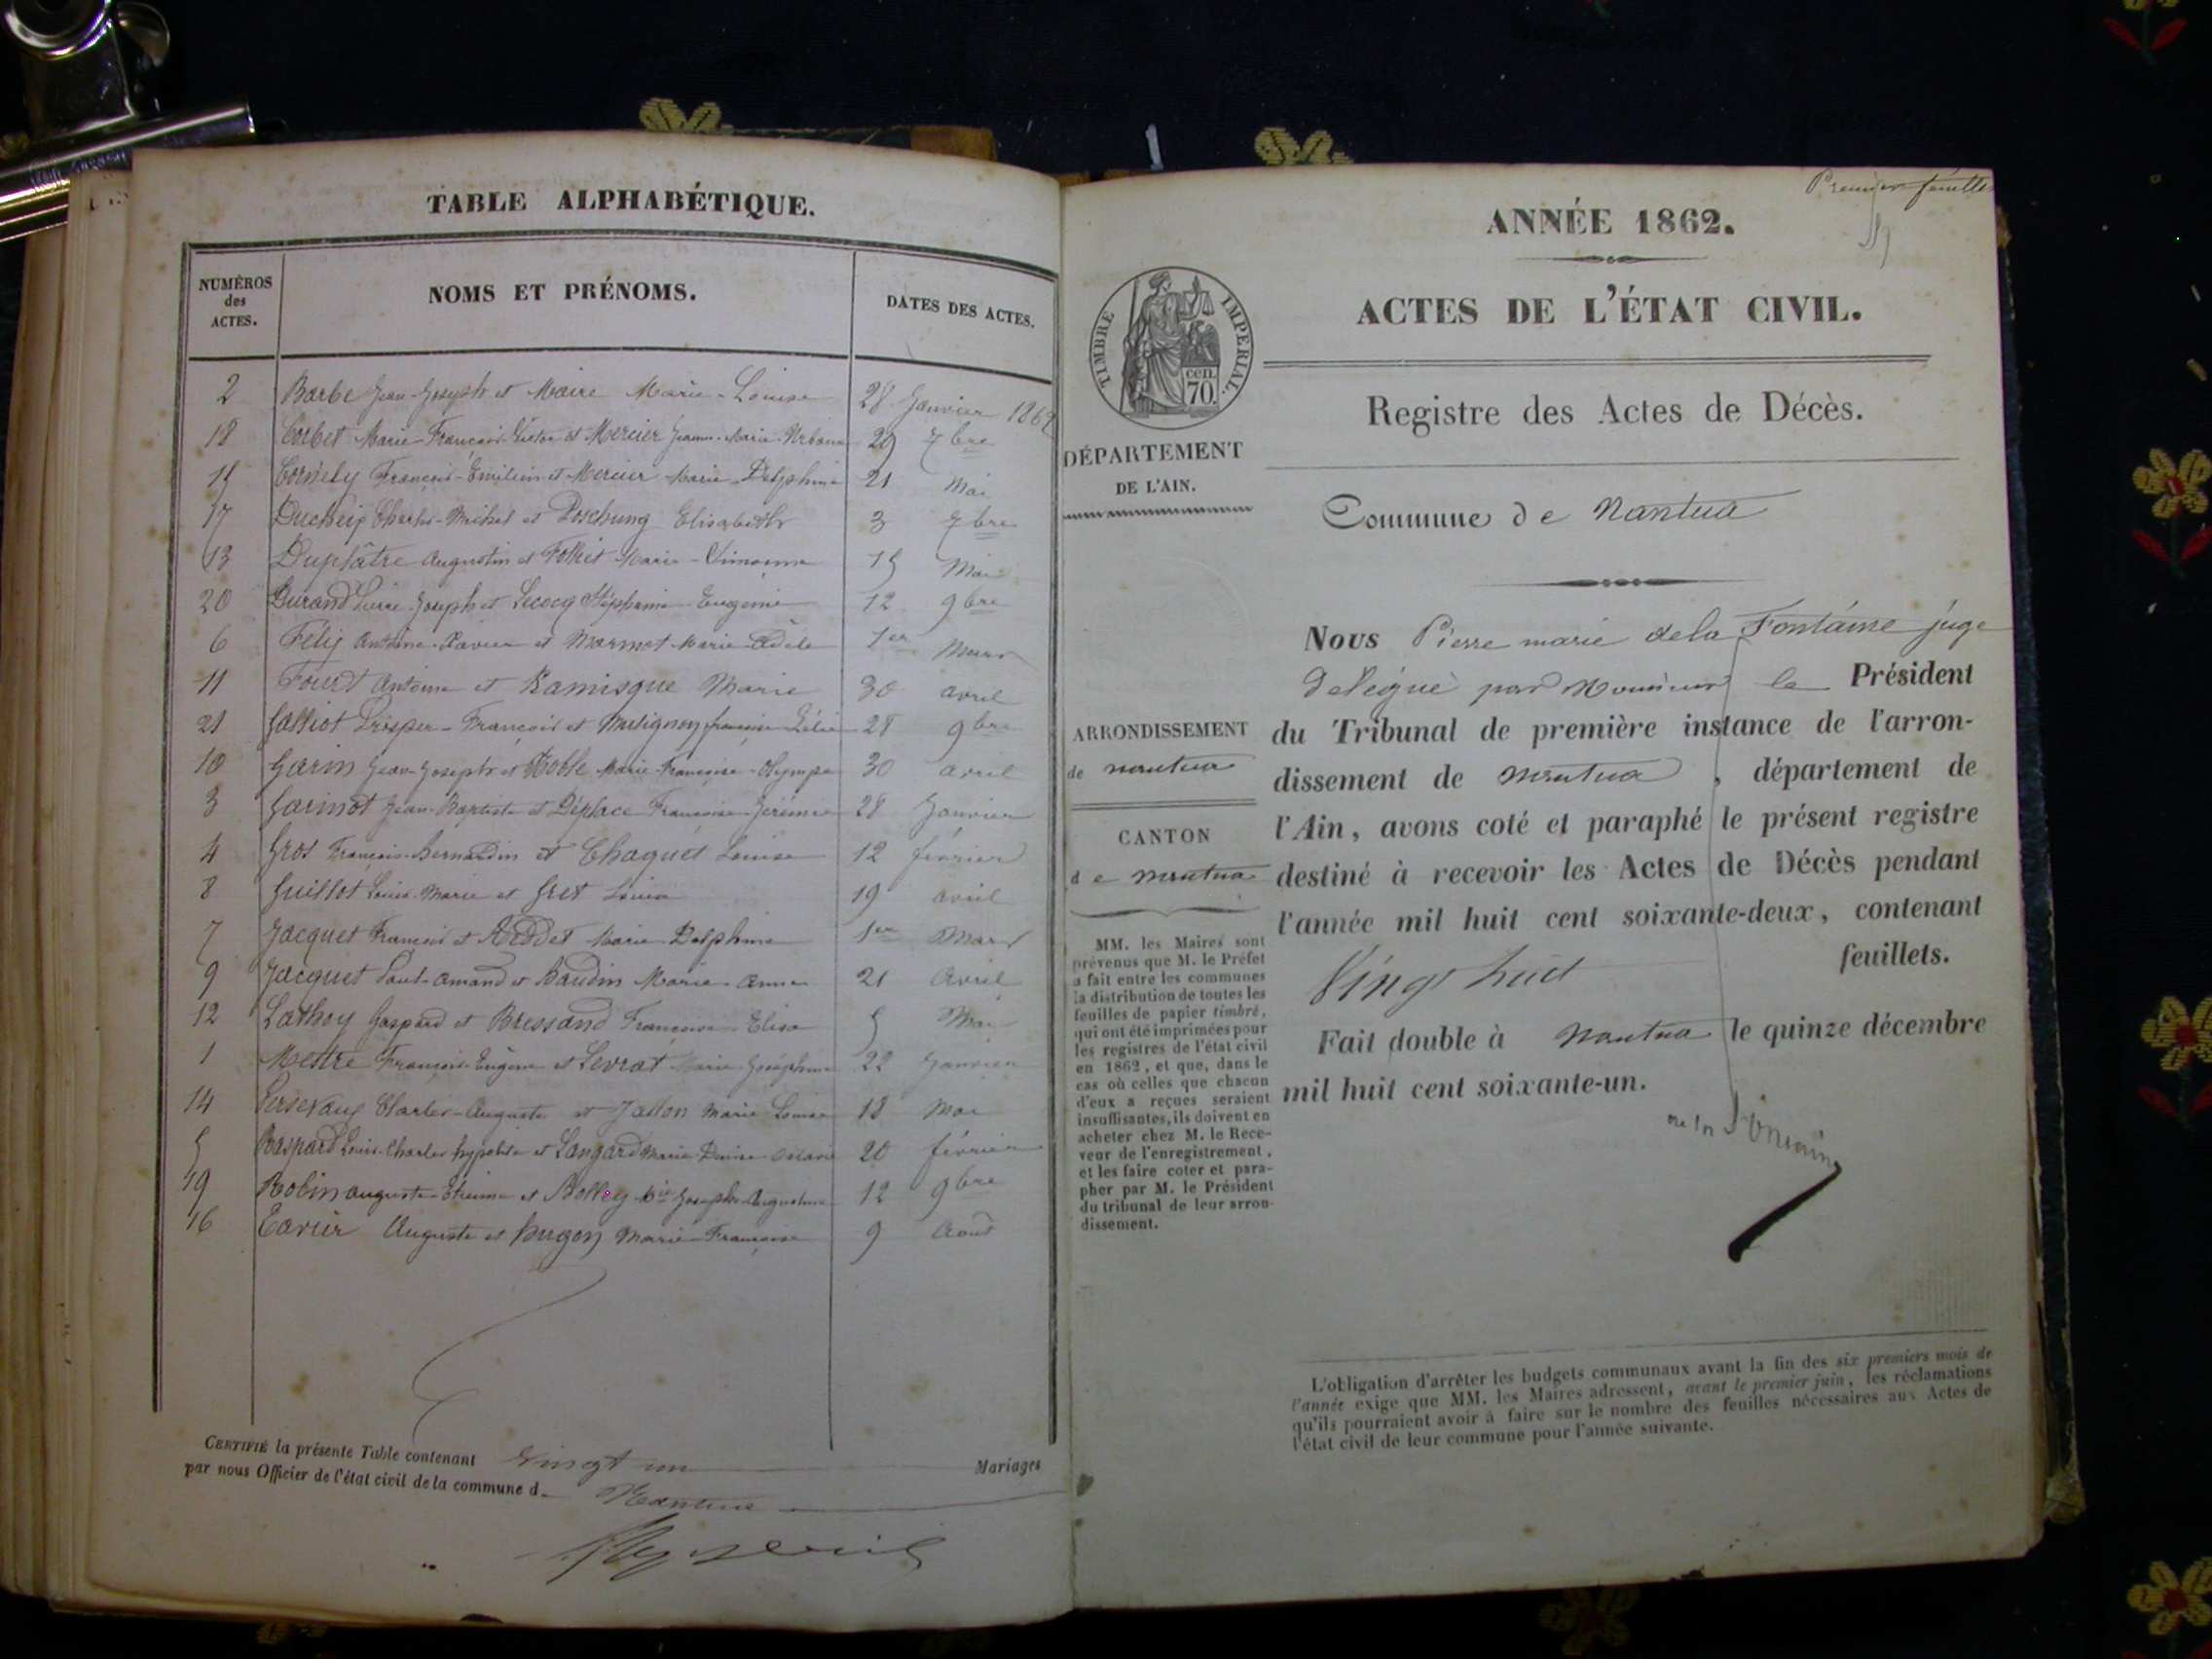 TABLE ALPHABÉTIQUE.
NUMÉROS
des
ACTES.
NOMS ET PRÉNOMS.
DATES DES ACTES.
2 Barbe Jean-Joseph et Maire Marie-Louise 28 Janvier 1862
18 Corbet Marie-François-Victor et Mercier Jeanne-Marie-Urbaine 29 7bre
15 Cornely François-Emilien et Mercier Marie-Delphine 21 Mai
17 Charles-Michel et Poschung Elisabeth 3 7bre
13 Duplâtre Augustin et Marie-Simonne 15 Mai
20 Durand Pierre-Joseph et Lecocq Stéphanie-Eugénie 12 9bre
6 Félix Antoine-Xavier et Marmet Marie-Adèle 1er Mars
11 Antoine et Ramisque Marie 30 avril
21 Prosper-François et 28 9bre
10 Garin Jean-Joseph et Marie-Françoise-Olympe 30 avril
3 Jean-Baptiste et Déplace Françoise-Jérémie 28 Janvier
4 Gros François-Bernardin et Chaquet Louise 12 février
8 Guillot Louis-Marie et 19 avril
7 Jacquet François et Marie-Delphine 1er Mars
9 Jacquet Paul-Amand et Baudin Marie-Anne 21 Avril
12 Lathoy Gaspard et Bressand Françoise-Elisa 5 Mai
1 Mestre François-Eugène et Levrat Marie-Joséphine 22 Janvier
14 Charles-Auguste et Marie-Louise 18 Mai
5 Raspard Louis-Charles-hypolite et Langard Marie-Denise 20 février
19 Robin auguste-Etienne et Bolley Mie Josephe-Augustine 12 9bre
16 Auguste et hugon Marie-Françoise 9 Août
CERTIFIÉ la présente Table contenant Vingt un Mariages
par nous Officier de l'état civil de la commune d Nantua
Premier feuillet
ANNÉE 1862.
ACTES DE L'ÉTAT CIVIL.
TIMBRE IMPÉRIAL.
cen.
70.
Registre des Actes de Décès.
DÉPARTEMENT
DE L'AIN.
Commune de Nantua
Nous Pierre marie de la Fontaine juge
délégué par Monsieur le Président
du Tribunal de première instance de l'arron-
dissement de nantua, département de
l'Ain, avons coté et paraphé le présent registre
destiné à recevoir les Actes de Décès pendant
l'année mil huit cent soixante-deux, contenant
Vingt huit feuillets.
Fait double à nantua le quinze décembre
mil huit cent soixante-un.
ARRONDISSEMENT
de nantua
CANTON
de nantua
MM. les Maires sont
prévenus que M. le Préfet
a fait entre les communes
la distribution de toutes les
feuilles de papier timbré,
qui ont été imprimées pour
les registres de l'état civil
en 1862, et que, dans le
cas où celles que chacun
d'eux a reçues seraient
insuffisantes, ils doivent en
acheter chez M. le Rece-
veur de l'enregistrement,
et les faire coter et para-
pher par M. le Président
du tribunal de leur arron-
dissement.
L'obligation d'arrêter les budgets communaux avant la fin des six premiers mois de
l'année exige que MM. les Maires adressent, avant le premier juin, les réclamations
qu'ils pourraient avoir à faire sur le nombre des feuilles nécessaires aux Actes de
l'état civil de leur commune pour l'année suivante.